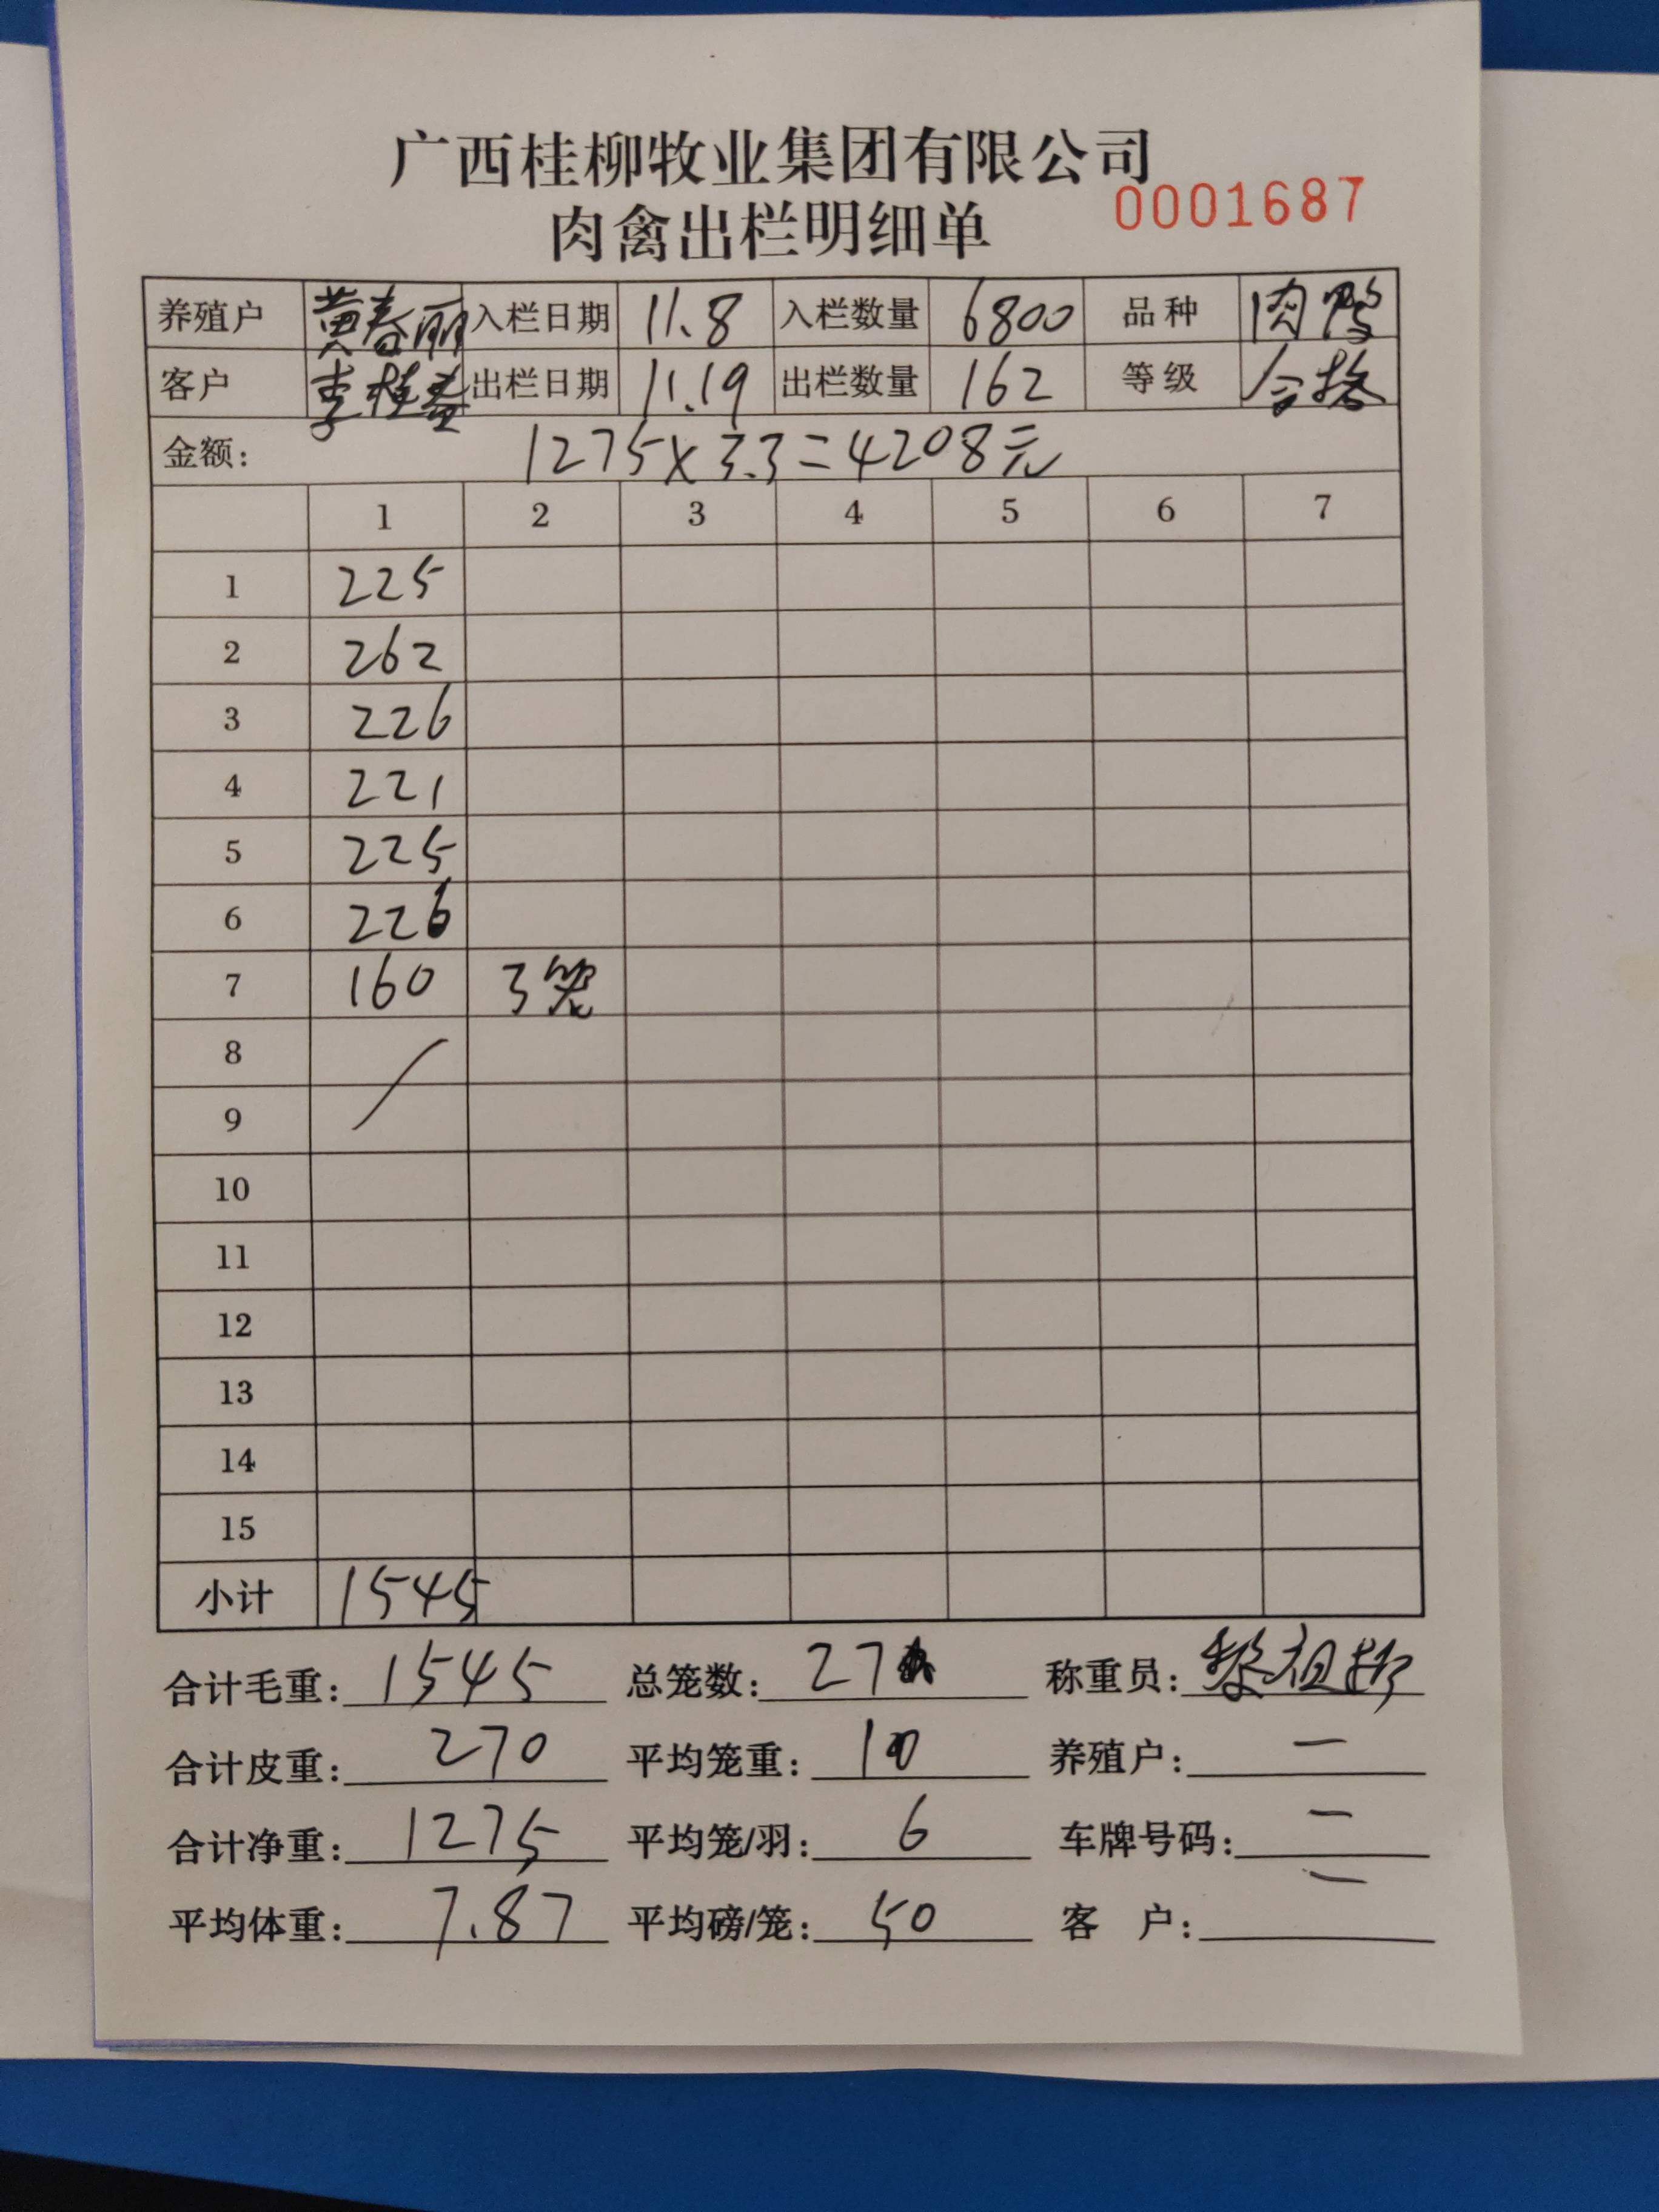 广西桂柳牧业集团有限公司
肉禽出栏明细单 0001687
养殖户 黄春丽 入栏日期 11.8 入栏数量 6800 品种 肉鸭
客户 李桂春 出栏日期 11.19 出栏数量 162 等级 合格
金额: 1275×3.3=4208元
1 2 3 4 5 6 7
1 225
2 262
3 226
4 221
5 225
6 226
7 160 3笼
8
9
10
11
12
13
14
15
小计 1545
合计毛重: 1545 总笼数: 27 称重员:
合计皮重: 270 平均笼重: 10 养殖户: 一
合计净重: 1275 平均笼/羽: 6 车牌号码: 一
平均体重: 7.87 平均磅/笼: 50 客 户: 一